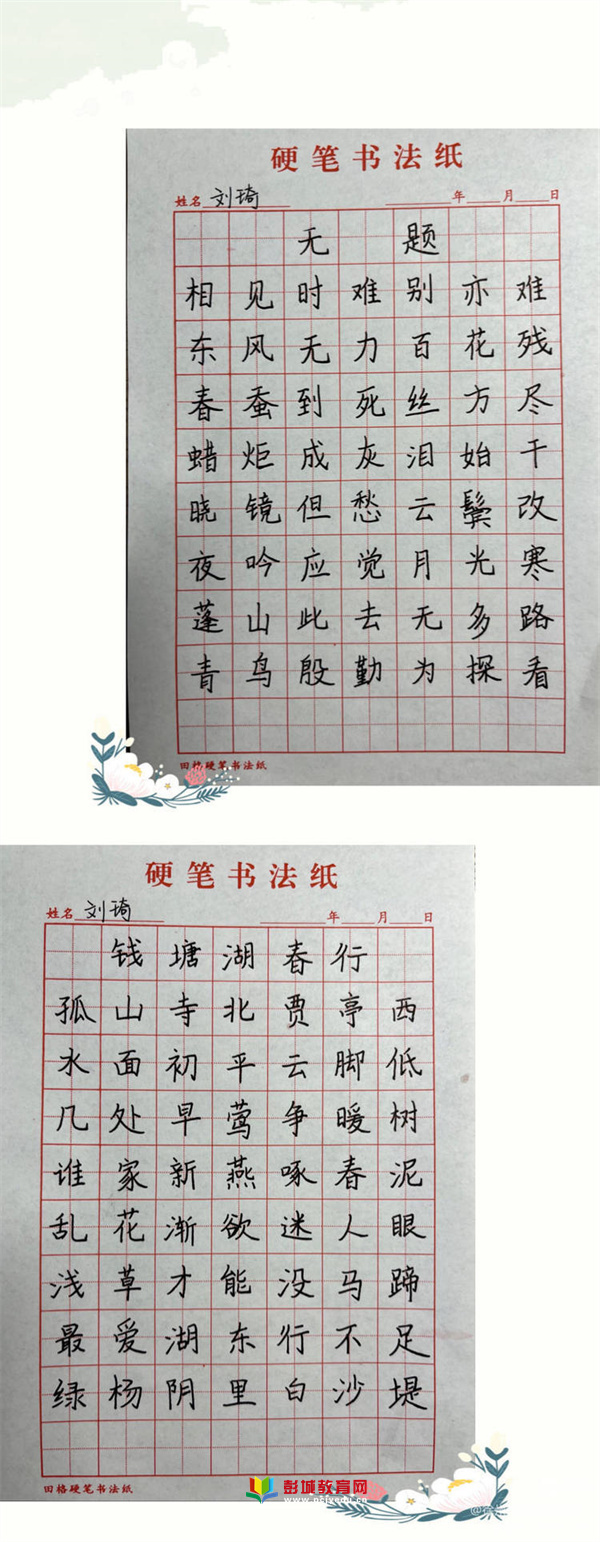 硬笔书法纸
姓名 刘琦 年 月 日
无题
相见时难别亦难
东风无力百花残
春蚕到死丝方尽
蜡炬成灰泪始干
晓镜但愁云鬓改
夜吟应觉月光寒
蓬山此去无多路
青鸟殷勤为探看
田格硬笔书法纸
硬笔书法纸
姓名 刘琦 年 月 日
钱塘湖春行
孤山寺北贾亭西
水面初平云脚低
几处早莺争暖树
谁家新燕啄春泥
乱花渐欲迷人眼
浅草才能没马蹄
最爱湖东行不足
绿杨阴里白沙堤
田格硬笔书法纸
彭城教育网